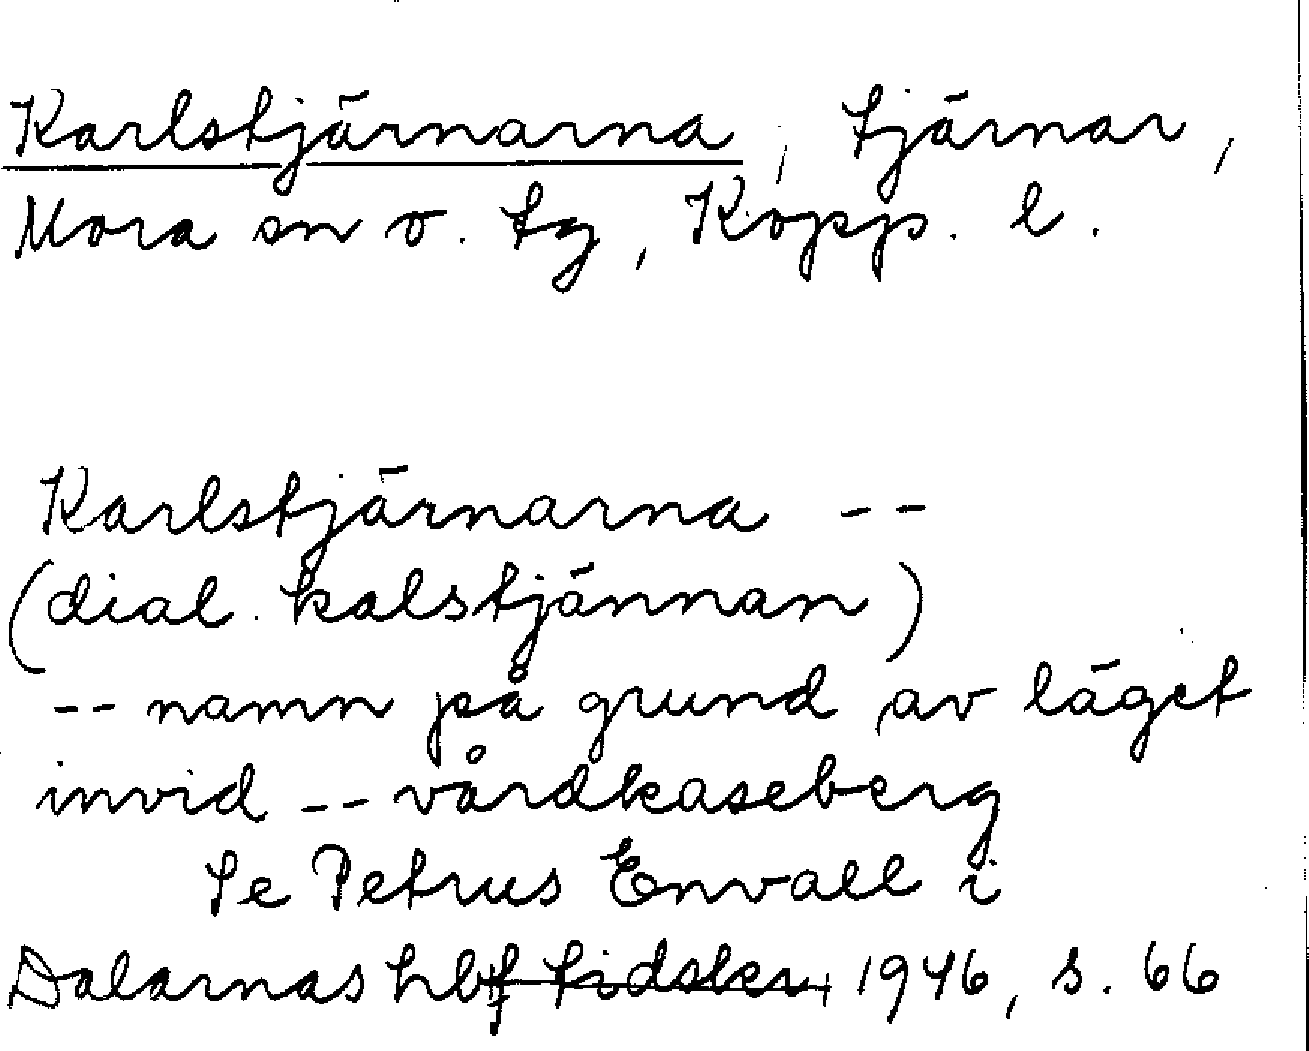 Karlstjärnarna, tjärnar,
Mora sn o. tg, Kopp. l.
Karlstjärnarna --
(dial. kalstjännan)
-- namn på grund av läget
invid -- vårdkaseberg
Se Petrus Envall i
Dalarnas hbf tidskr 1946, s. 66